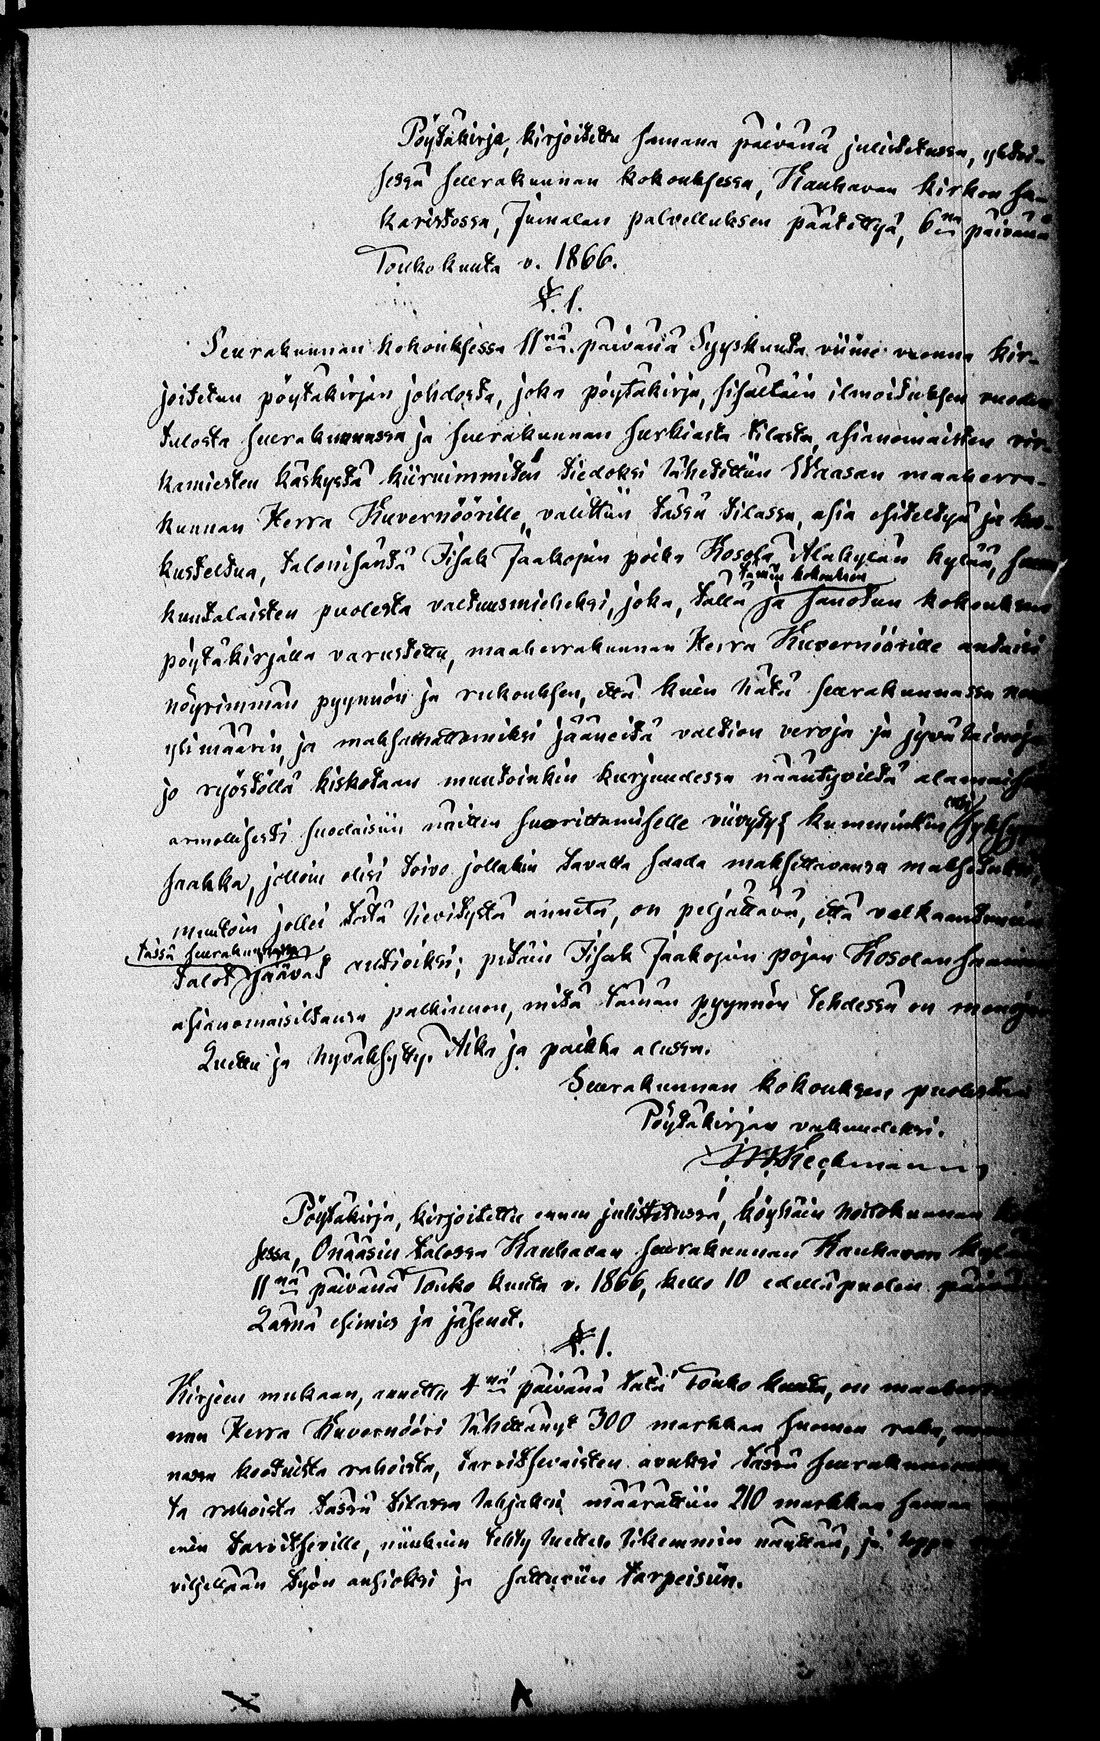 Pöytäkirja, kirjoitettu samana päivänä julistetussa, yhtei-
sessä seurakunnan kokouksessa, Kauhavan kirkon sa-
karistossa, Jumalan palvelluksen päätettyä, 6na päivänä
Toukokuuta v. 1866.
§. 1.
Seurakunnan kokouksessa 11nä päivänä Syyskuuta viime vuonna kir-
joitetun pöytäkirjan johdosta, joka pöytäkirja, sisältäin ilmoituksen vuoden
tulosta seurakunnassa ja seurakunnan surkiasta tilasta, asianomaisten vir-
kamiesten käskystä kiiruimmiten tiedoksi lähetettiin Waasan maaherra-
kunnan Herra Kuvernöörille, valittiin tässä tilassa, asia esiteltyä ja kes-
kusteltua, talonisäntä Iisak Jaakopin poika Kosola Alakylän kylää,
kuntalaisten puolesta valtuusmieheksi, joka, tällä tämän kokouksen ja sanotun kokouksen
pöytäkirjalla varustettu, maaherrakunnan Herra Kuvernöörille antaisi
nöyrimmän pyynnön ja rukouksen, että kuin hätä seurakunnassa
ylimäärin, ja maksamattomiksi jääneitä valtion veroja ja jyvälainoja
jo ryöstöllä kiskotaan muutoinkin kurjuudessa nääntyviltä alamaisilta
armollisesti suodaisiin näitten suorittamiselle viivytys kumminkin
saakka, jolloin olisi toivo jollakin tavalla saada maksettavansa maksetuksi,
muutoin jollei tätä lievitystä anneta, on peljättävä, että
tässä seurakunnassa
talot jäävät autioiksi; pitäin Iisak Jaakopin pojan Kosolan saaman
asianomaisiltansa palkinnon, mitä tämän pyynnön tehdessä on
Luettu ja hyväksytty. Aika ja paikka alussa.
Seurakunnan kokouksen puolesta
Pöytäkirjan vakuudeksi.
Pöytäkirja, kirjoitettu ennen julistetussa, köyhäin hoitokunnan
sessa, Onääsin talossa Kauhavan seurakunnan Kauhavan kylää
11nä päivänä Touko kuuta v. 1866, kello 10 edellä puolen päivän
Läsnä esimies ja jäsenet.
§. 1.
Kirjeen mukaan, annettu 4nä päivänä tätä Touko kuuta, on
nan Herra Kuvernööri lähettänyt 300 markkaa Suomen raha,
nassa kootuista rahoista, tarvitsevaisten avuksi tässä seurakunnassa
ta rahoista tässä tilassa lahjaksi määrättiin 210 markkaa
min tarvitseville, niinkuin tehty luettelo likemmin näyttää, ja loppu
viljellään työn ansioksi ja sattuviin tarpeisiin.